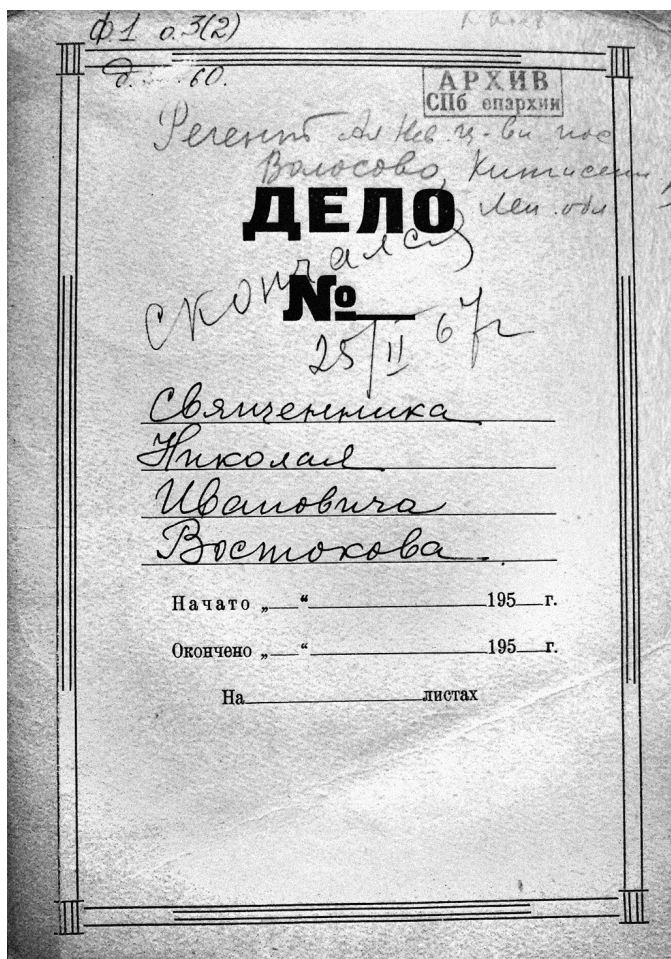 ф.1 о.3(2)
д. 60.
АРХИВ
СПб епархии
Регент Ал Нев. ц-ви пос
Волосово, Кингисепп
Лен. обл
ДЕЛО
скончался
№
25/II 67г
Священника
Николая
Ивановича
Востокова.
Начато „ “ 195 г.
Окончено „ “ 195 г.
На листах